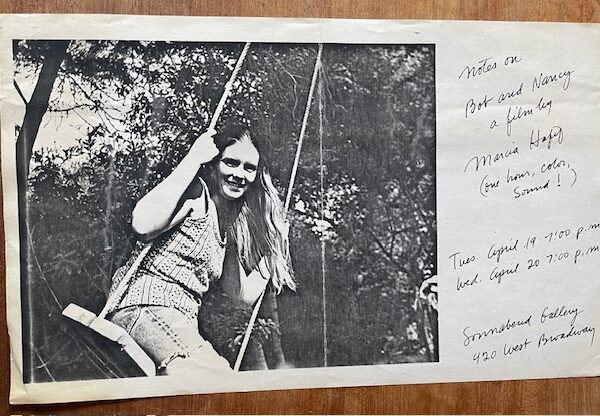 Notes on
Bob and Nancy
a film by
Marcia Hafif
(one hour, color,
Sound!)
Tues. April 19 7:00 p.m
Wed. April 20 7:00 p.m
Sonnabend Gallery
420 West Broadway